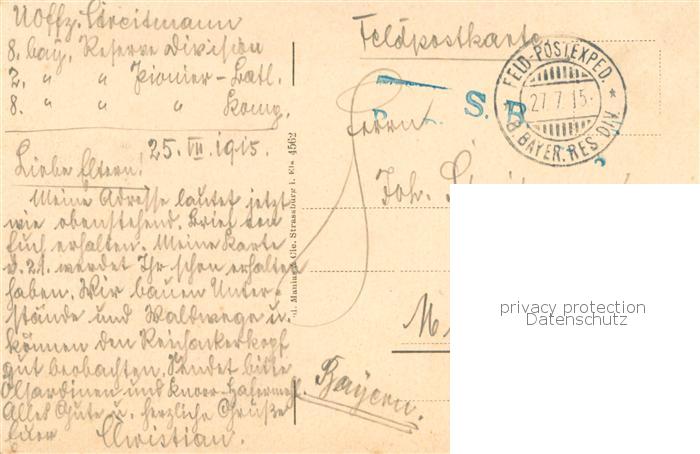 Uoffz. Streitmann
8. bay. Reserve Division
2. " " Pionier-Batl.
8. " " " Komp.
25. VII. 1915.
Liebe Eltern!
Meine Adresse lautet jetzt
wie obenstehend. Brief von
Euch erhalten. Meine Karte
v. 21. werdet Ihr schon erhalten
haben. Wir bauen Unter-
stände und Waldwege u.
können den Reichsackerkopf
gut beobachten. Sendet bitte
Ölsardinen und Knorr-Hafermehl.
Alles Gute u. herzliche Grüße
Euer Christian.
Manias & Cie. Strassburg i. Els. 4562
Feldpostkarte
S. B.
FELD-POSTEXPED.
27 7 15
8 BAYER. RES. DIV.
Herrn
Joh.
Bayern.
privacy protection
Datenschutz